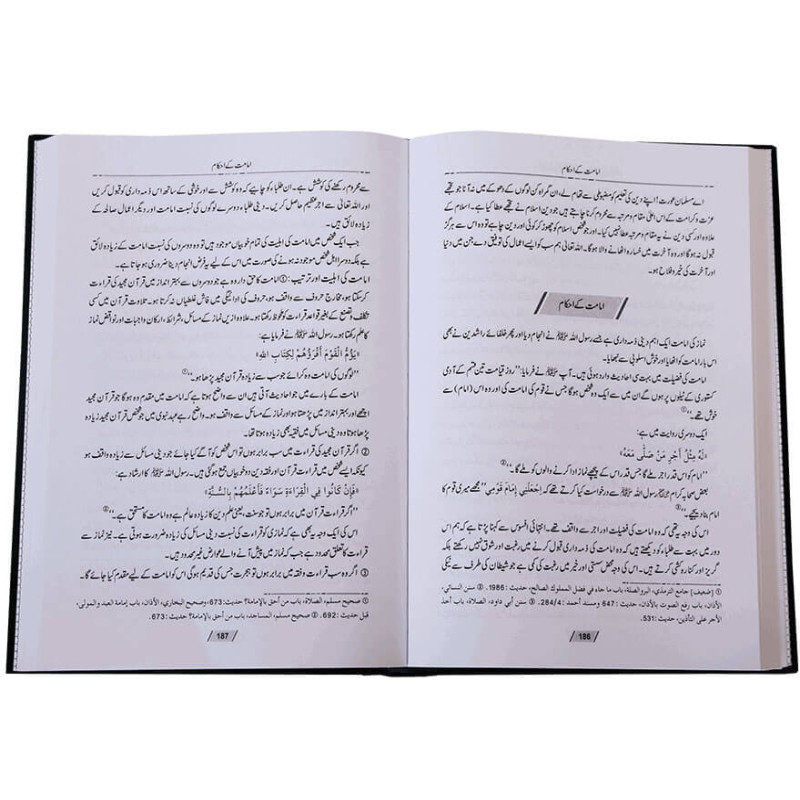 امامت کے احکام
اے مسلمان عورت! اپنے دین کی تعلیم کو مضبوطی سے تھام لے، ان گمراہ کن لوگوں کے دھوکے میں نہ آنا جو تجھے
عزت و کرامت کے اس اعلیٰ مقام و مرتبہ سے محروم کرنا چاہتے ہیں جو دین اسلام نے تجھے عطا کیا ہے۔ اسلام کے
علاوہ اور کسی دین نے یہ مقام و مرتبہ عطا نہیں کیا۔ اور جو شخص اسلام کو چھوڑ کر کوئی اور دین چاہے تو وہ اس سے ہرگز
قبول نہ ہو گا اور وہ آخرت میں خسارہ اٹھانے والا ہو گا۔ اللہ تعالیٰ ہم سب کو ایسے اعمال کی توفیق دے جس میں دنیا
اور آخرت کی خیر و فلاح ہو۔
امامت کے احکام
نماز کی امامت ایک اہم دینی ذمہ داری ہے جسے رسول اللہ ﷺ نے انجام دیا اور پھر خلفائے راشدین نے بھی
اس بار امامت کو اٹھایا اور خوش اسلوبی سے نبھایا۔
امامت کی فضیلت میں بہت سی احادیث وارد ہوئی ہیں۔ آپ ﷺ نے فرمایا: ’’روز قیامت تین قسم کے آدمی
کستوری کے ٹیلوں پر ہوں گے ان میں سے ایک وہ شخص ہو گا جس نے قوم کی امامت کی اور وہ اس (امام) سے
خوش تھے۔‘‘①
ایک دوسری روایت میں ہے:
«لَهُ مِثْلُ أَجْرِ مَنْ صَلَّى مَعَهُ»
’’امام کو اس قدر اجر ملے گا جس قدر اس کے پیچھے نماز ادا کرنے والوں کو ملے گا۔‘‘②
بعض صحابہ کرام رسول اللہ ﷺ سے درخواست کیا کرتے تھے کہ اِجْعَلْنِي إِمَامَ قَوْمِي ’’مجھے میری قوم کا
امام بنا دیجیے۔‘‘③
اس کی وجہ یہ تھی کہ وہ امامت کی فضیلت اور اجر سے واقف تھے۔ انتہائی افسوس سے کہنا پڑتا ہے کہ ہم اس
دور میں بہت سے طلباء کو دیکھتے ہیں کہ وہ امامت کی ذمہ داری قبول کرنے میں رغبت اور شوق نہیں رکھتے بلکہ
گریز اور کنارہ کشی کرتے ہیں۔ اس کی وجہ محض سستی اور خیر میں رغبت کی کمی ہے جو شیطان کی طرف سے نیکی
① [ضعیف] جامع الترمذي، البر والصلة، باب ما جاء في فضل المملوك الصالح، حديث: 1986. ② سنن النسائي،
الأذان، باب رفع الصوت بالأذان، حديث: 647 ومسند أحمد: 284/4. ③ سنن أبي داود، الصلاة، باب أخذ
الأجر على التأذين، حديث: 531.
186
امامت کے احکام
سے محروم رکھنے کی کوشش ہے۔ ان طلباء کو چاہیے کہ وہ کوشش اور خوشی کے ساتھ اس ذمہ داری کو قبول کریں
اور اللہ تعالیٰ سے اجر عظیم حاصل کریں۔ دینی طلباء دوسرے لوگوں کی نسبت امامت اور دیگر اعمال صالحہ کے
زیادہ لائق ہیں۔
جب ایک شخص میں امامت کی اہلیت کی تمام خوبیاں موجود ہیں تو وہ دوسروں کی نسبت امامت کے زیادہ لائق
ہے بلکہ دوسرا اہل شخص موجود نہ ہونے کی صورت میں اس کے لیے یہ فرض انجام دینا ضروری ہو جاتا ہے۔
امامت کی اہلیت اور ترتیب: ① امامت کا حق دار وہ ہے جو دوسروں سے بہتر انداز میں قرآن مجید کی قراءت
کر سکتا ہو، مخارج حروف سے واقف ہو، حروف کی ادائیگی میں فاش غلطیاں نہ کرتا ہو۔ تلاوت قرآن میں کسی
تکلف و تصنع کے بغیر قواعد قراءت کو ملحوظ رکھتا ہو۔ علاوہ ازیں نماز کے مسائل، شرائط، ارکان و واجبات اور نواقض نماز
کا علم رکھتا ہو۔ رسول اللہ ﷺ نے فرمایا ہے:
«يَؤُمُّ الْقَوْمَ أَقْرَؤُهُمْ لِكِتَابِ اللهِ»
’’لوگوں کی امامت وہ کرائے جو سب سے زیادہ قرآن مجید پڑھا ہو۔‘‘①
امامت کے بارے میں جو احادیث آتی ہیں ان سے واضح ہوتا ہے کہ امامت میں مقدم وہ ہو گا جو قرآن مجید
اچھے اور بہتر انداز میں پڑھتا ہو اور نماز کے مسائل سے واقف ہو۔ واضح رہے عہد نبوی میں جو شخص قرآن مجید زیادہ
پڑھا ہوتا وہ دینی مسائل میں فقیہ بھی زیادہ ہوتا تھا۔
② اگر قرآن مجید کی قراءت میں سب برابر ہوں تو اس شخص کو آگے کیا جائے جو دینی مسائل سے زیادہ واقف ہو
کیونکہ ایسے شخص میں قراءت قرآن اور فقہ دین دو خوبیاں جمع ہو گئی ہیں۔ رسول اللہ ﷺ کا ارشاد ہے:
«فَإِنْ كَانُوا فِي الْقِرَاءَةِ سَوَاءً فَأَعْلَمُهُمْ بِالسُّنَّةِ»
’’اگر قراءت میں برابر ہوں تو جو سنت، یعنی علم دین کا زیادہ عالم ہے وہ امامت کا مستحق ہے۔‘‘②
اس کی ایک وجہ یہ بھی ہے کہ نمازی کو قراءت کی نسبت دینی مسائل کی زیادہ ضرورت ہوتی ہے۔ نیز نماز سے
قراءت کا تعلق محدود ہے جب کہ نماز میں پیش آنے والے عوارض غیر محدود ہیں۔
③ اگر وہ سب قراءت و فقہ میں برابر ہوں تو ہجرت جس کی قدیم ہو گی اس کو امامت کے لیے مقدم کیا جائے گا۔
① صحيح مسلم، الصلاة، باب من أحق بالإمامة؟ حديث: 673، وصحيح البخاري، الأذان، باب إمامة العبد والمولى،
قبل حديث: 692. ② صحيح مسلم، المساجد، باب من أحق بالإمامة؟ حديث: 673.
187